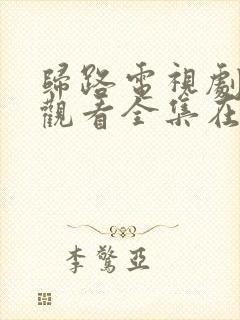 歸路電視劇
觀看全集在
李驚亞